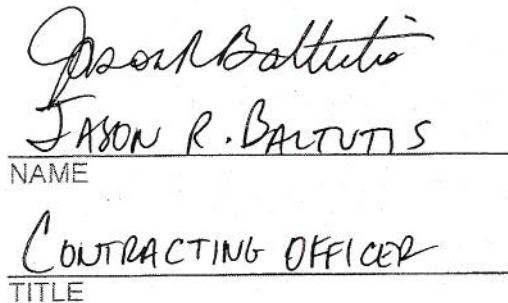 Jason R Baltutis
JASON R. BALTUTIS
NAME
CONTRACTING OFFICER
TITLE